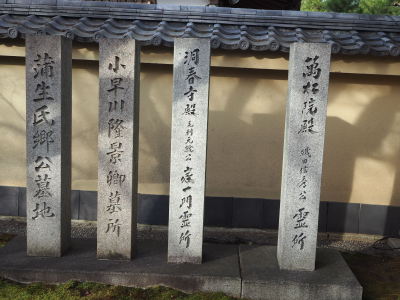 蒲生氏郷公墓地
小早川隆景卿墓所
洞春寺殿 毛利元就公 一門霊所
萬松院殿 織田信秀公 霊所